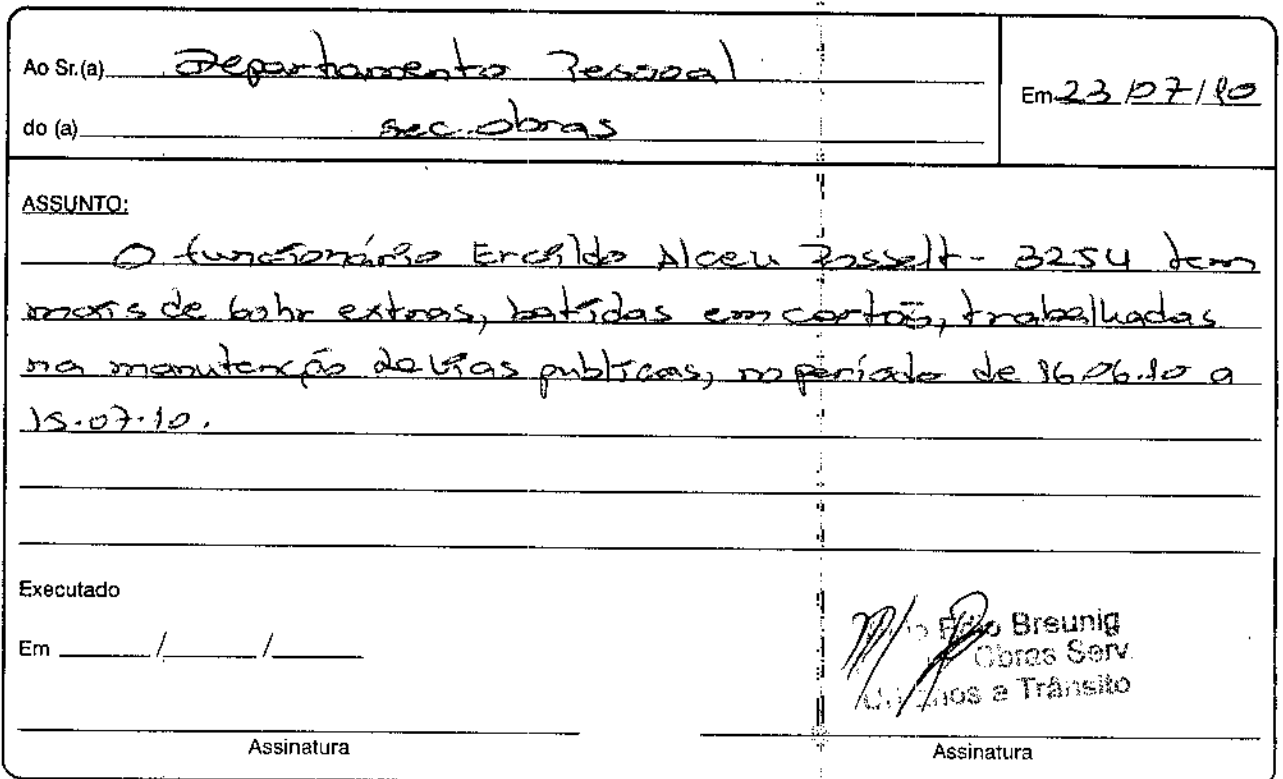 Ao Sr.(a) Departamento Pessoal
Em 23/07/10
do (a) sec. obras
ASSUNTO:
O funcionário Ercildo Alceu Posselt - 3254 tem
mais de 60hr extras, batidas em cartão, trabalhadas
na manutenção de vias publicas, no período de 16.06.10 a
15.07.10.
Executado
Em ____/____/____
Breunig
Obras Serv.
e Trânsito
Assinatura
Assinatura